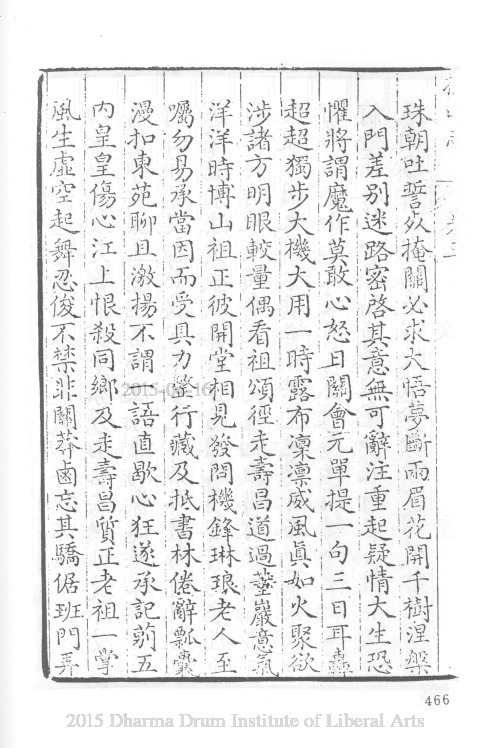 珠朝吐誓死掩關必求大悟夢斷兩眉花開千樹涅槃
入門差别迷路密啓其意無可辭注重起疑情大生恐
懼將謂魔作莫敢心怒日關會元單提一句三日耳聾
超超獨步大機大用一時露布凜凜威風真如火聚欲
涉諸方明眼較量偶看祖頌徑走壽昌道過董巖意氣
洋洋時博山祖正彼開堂相見發問機鋒琳琅老人至
囑勿易承當因而受具力整行藏及抵書林倦辭瓢囊
漫扣東苑聊且激揚不謂一語直歇心狂遂承記莂五
内皇皇傷心江上恨殺同鄉及走壽昌質正老祖一掌
風生虛空起舞忍俊不禁非關莽鹵忘其驕倨班門弄
466
2015-02-16
2015 Dharma Drum Institute of Liberal Arts